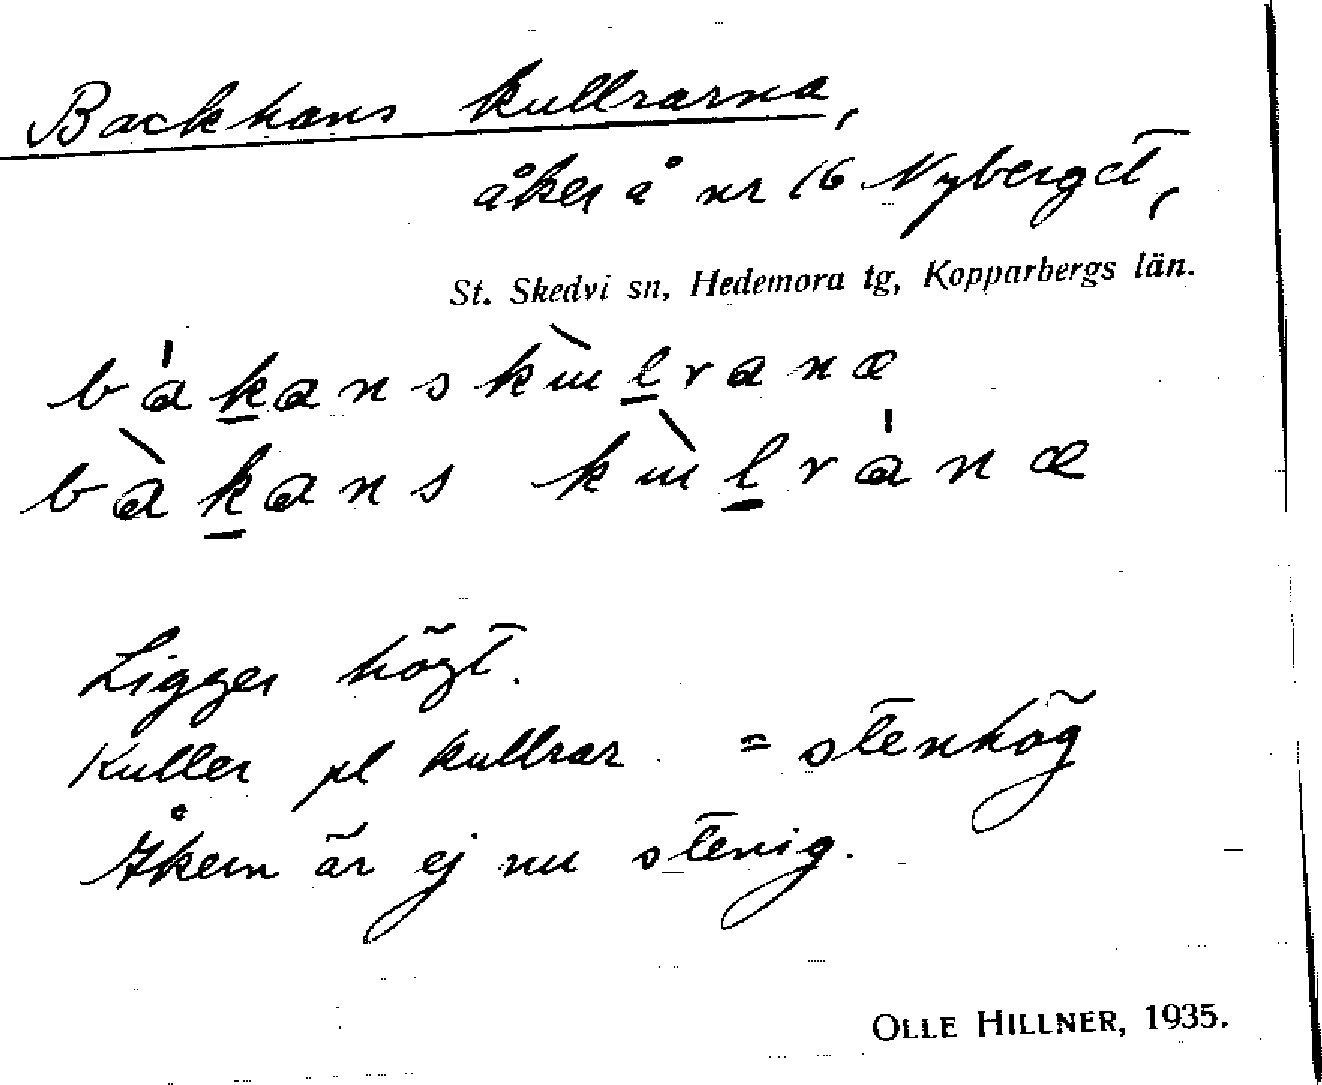 Backhans kullrarna,
åker å nr 16 Nyberget,
St. Skedvi sn, Hedemora tg, Kopparbergs län.
Ligger högt.
Kuller pl kullrar = stenhög
Åkern är ej nu stenig.
OLLE HILLNER, 1935.